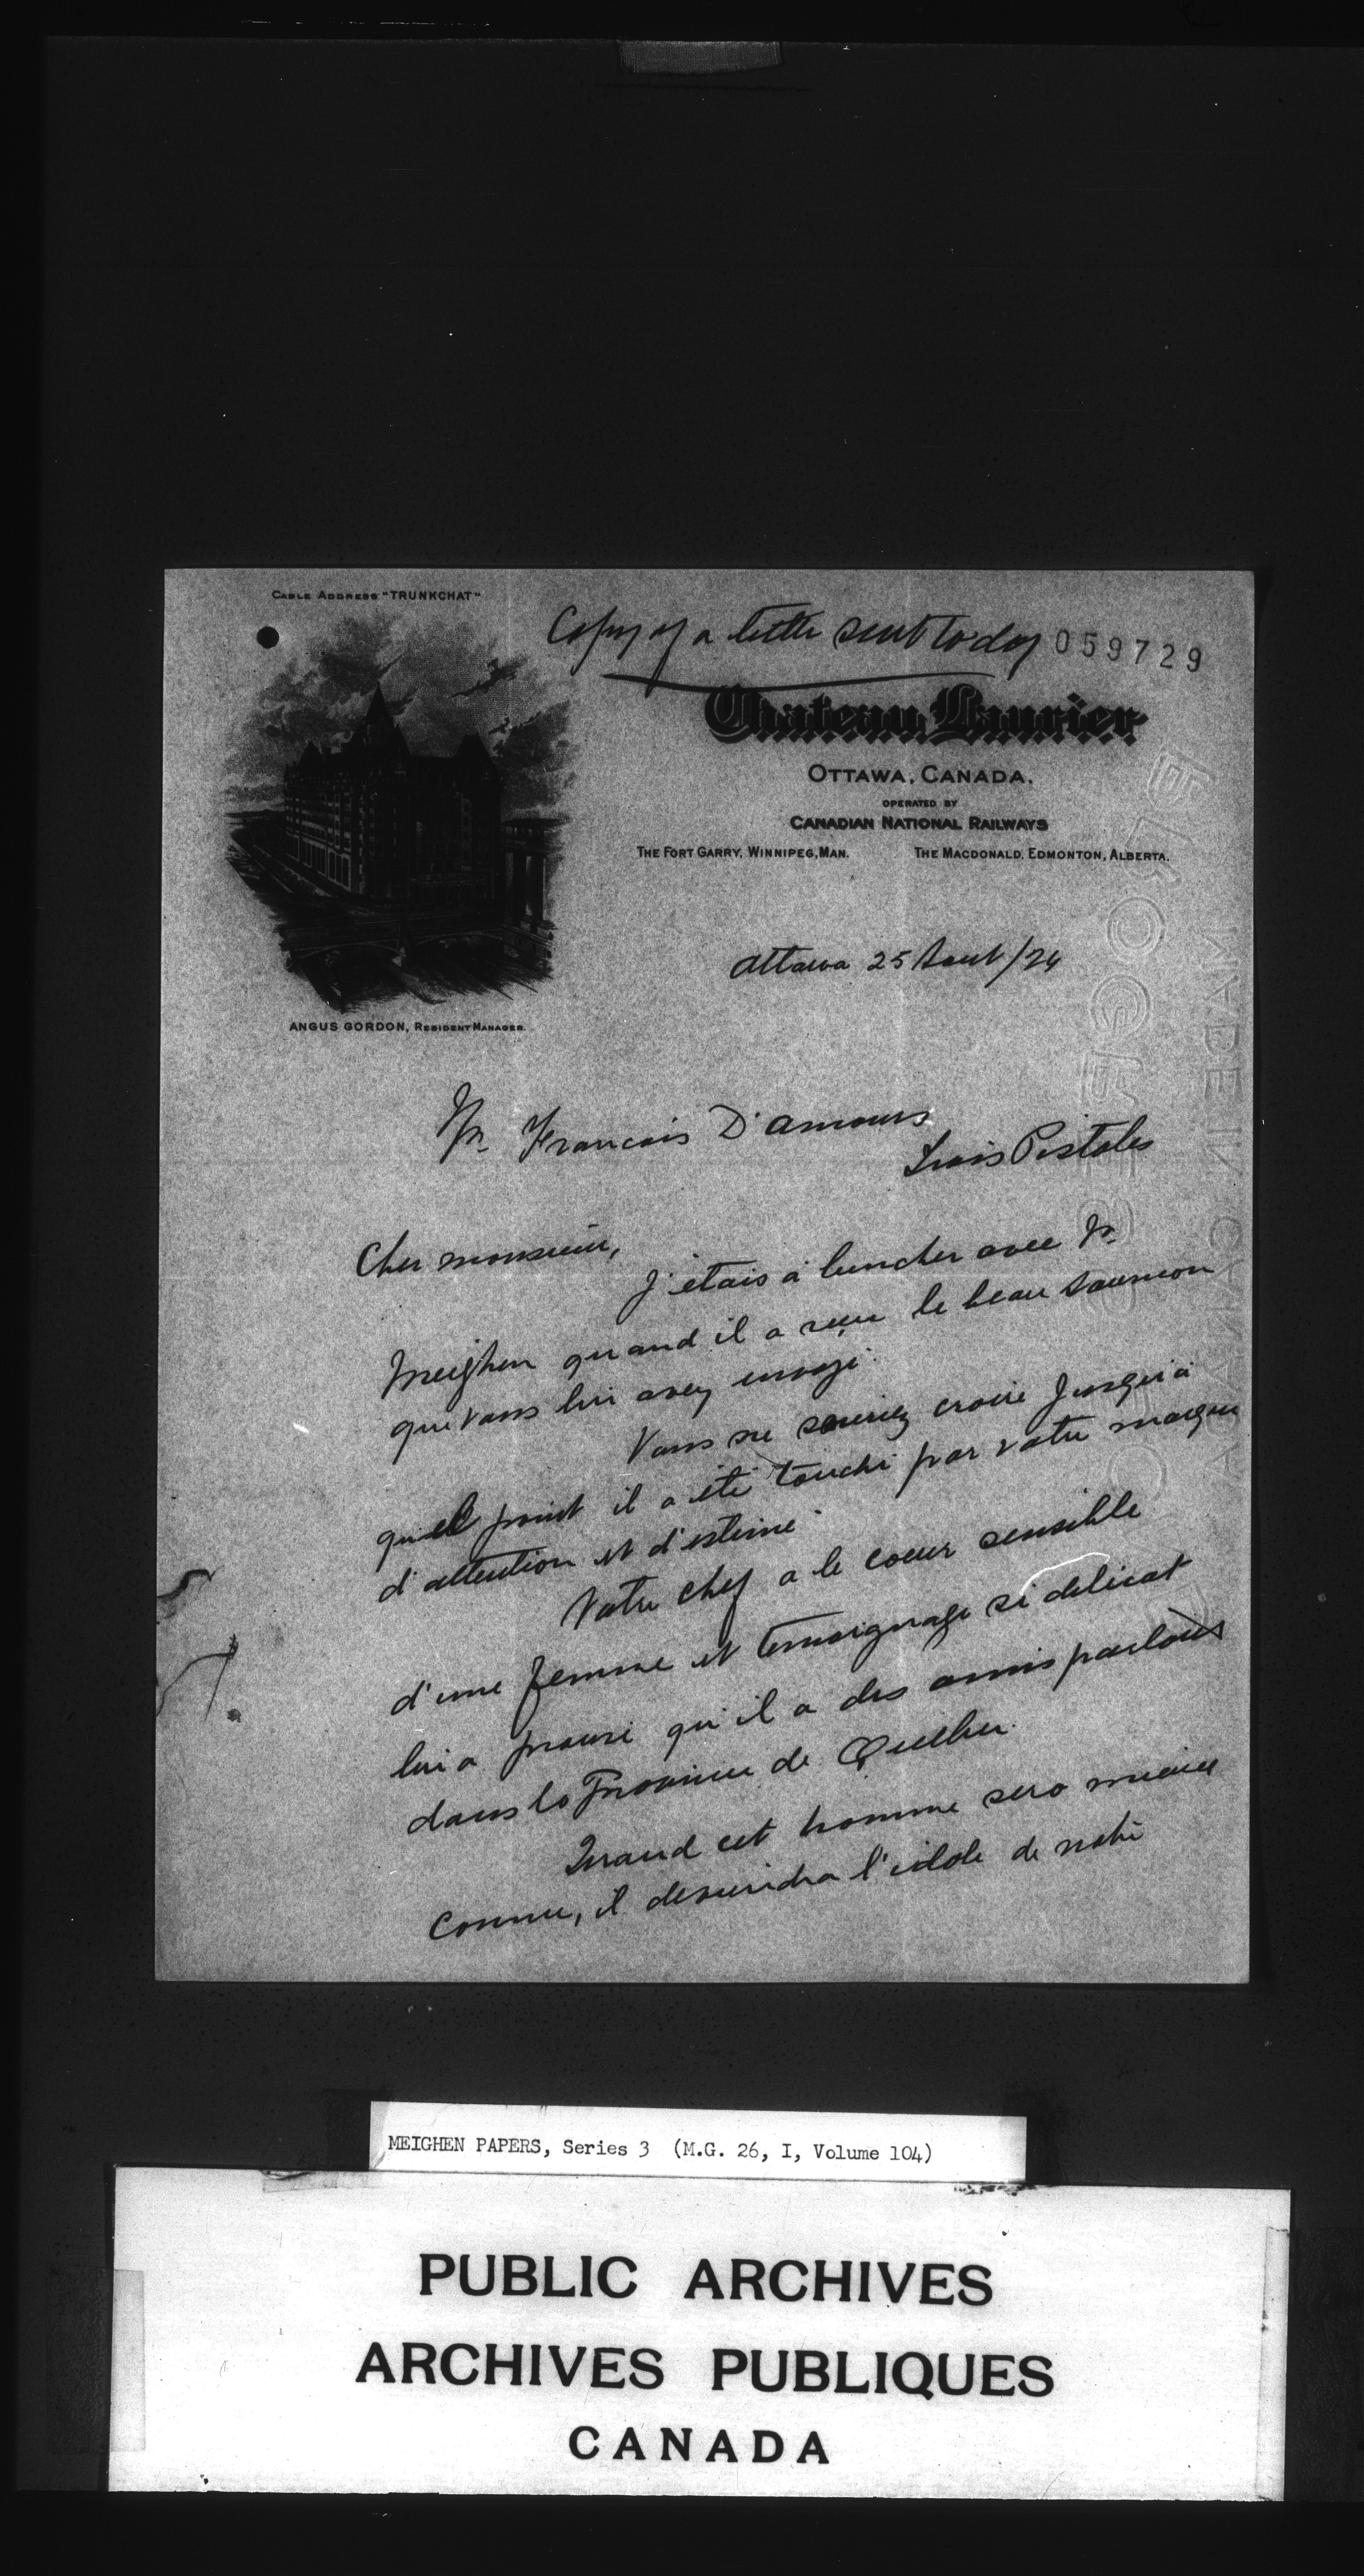 CABLE ADDRESS "TRUNKCHAT"
Copy of a letter sent today 059729
Chateau Laurier
OTTAWA, CANADA.
OPERATED BY
CANADIAN NATIONAL RAILWAYS
THE FORT GARRY, WINNIPEG, MAN. THE MACDONALD, EDMONTON, ALBERTA.
ANGUS GORDON, RESIDENT MANAGER.
Ottawa 25 Aout/24
Mr. Francois D'amours
Trois Pistoles
Cher monsieur,
J'etais à luncher avec Mr.
Meighen quand il a reçu le beau saumon
que vous lui avez envoyé.
Vous ne sauriez croire jusqu'à
quel point il a été touché par votre marque
d'attention et d'estime.
Votre chef a le coeur sensible
d'une femme et temoignage si delicat
lui a prouvé qu'il a des amis partout
dans la Province de Quebec.
Quand cet homme sera mieux
connu, il deviendra l'idole de notre
MADE IN CANADA
MEIGHEN PAPERS, Series 3 (M.G. 26, I, Volume 104)
PUBLIC ARCHIVES
ARCHIVES PUBLIQUES
CANADA